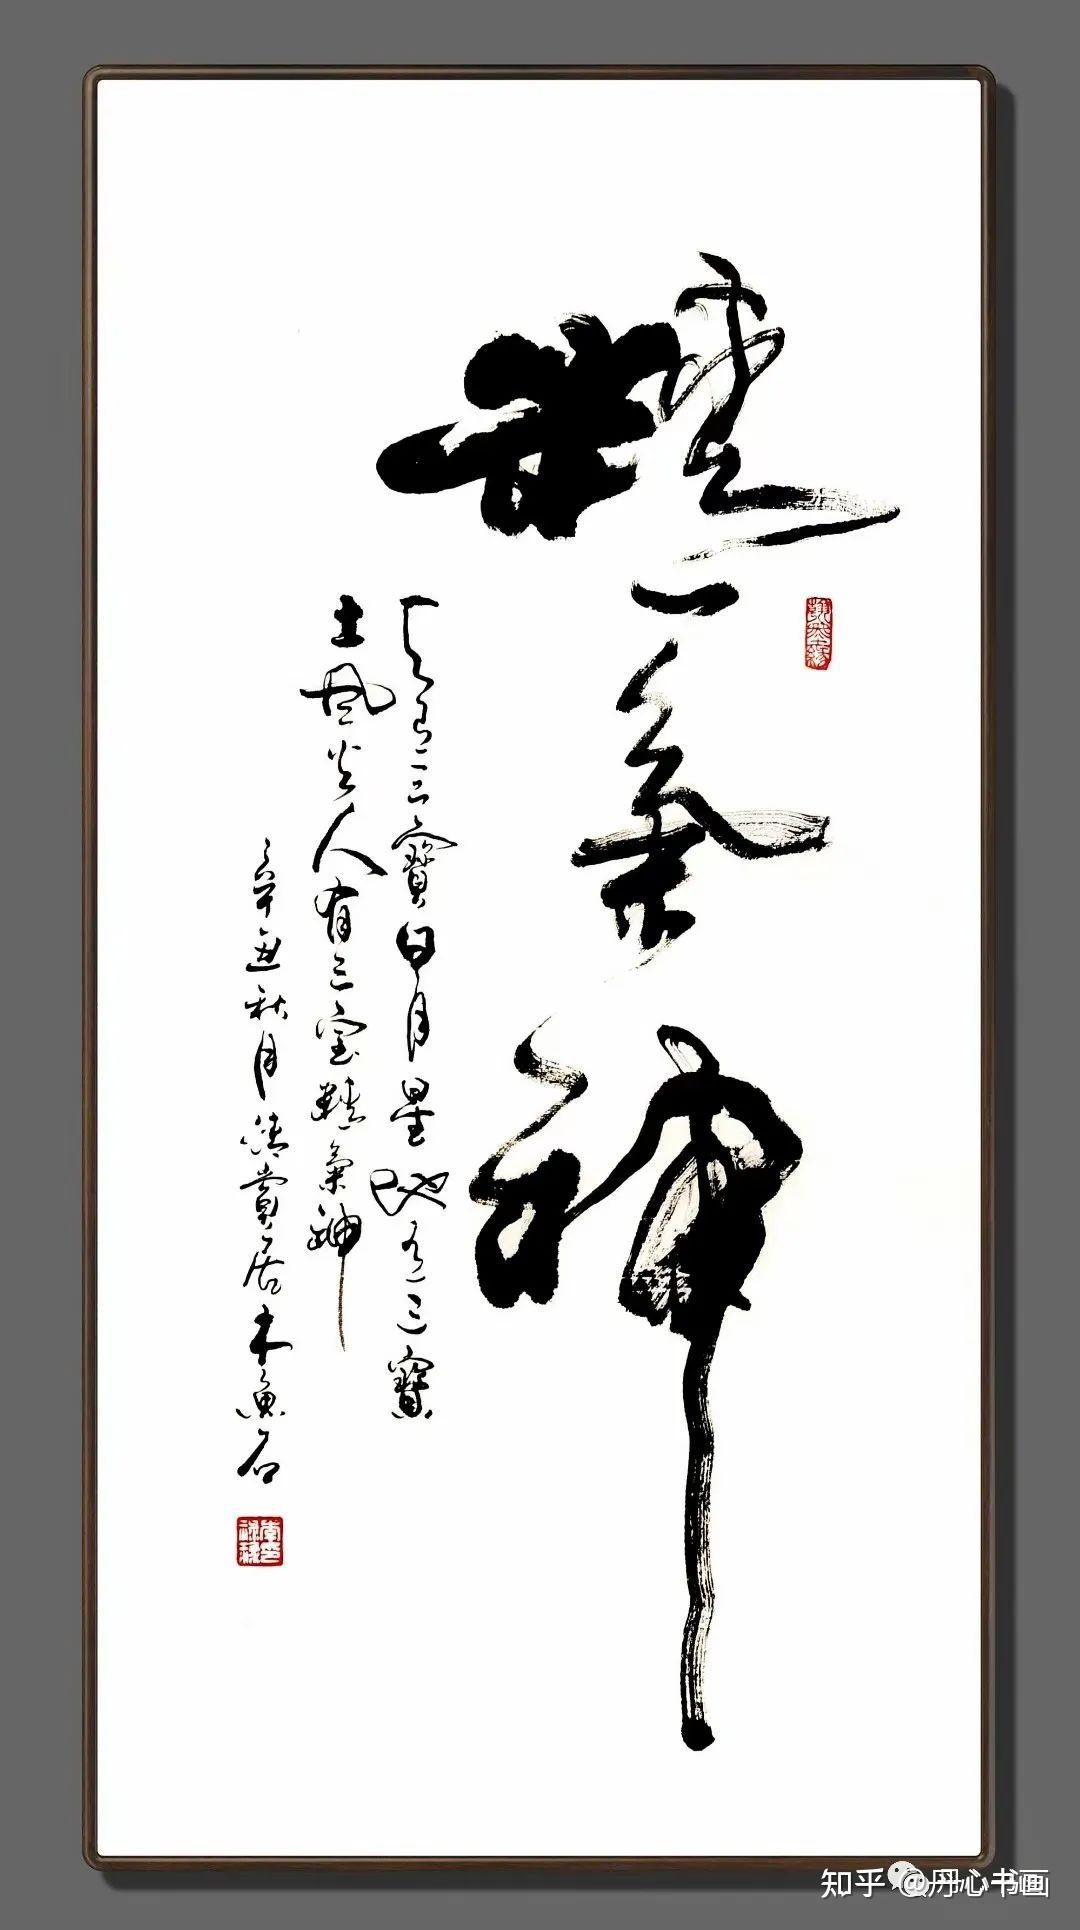 精氣神
天有三寶日月星地有三寶
土風火人有三宝精氣神
辛丑秋月清賞居木魚石
知乎 @丹心书画